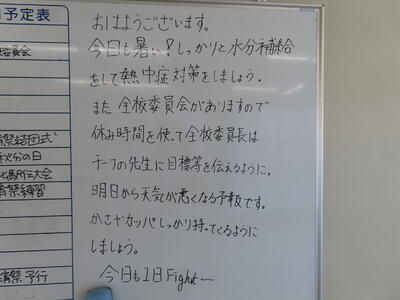 予定表
委員会
祭結団式
秋分の日
駅伝大会
祭練習
祭予行
おはようございます。
今日も暑い！しっかりと水分補給
をして熱中症対策をしましょう。
また、全校委員会がありますので
休み時間を使って全校委員長は
チーフの先生に目標等を伝えるように。
明日から天気が悪くなる予報です。
かさやカッパしっかり持ってくるように
しましょう。
今日も1日Fight〜